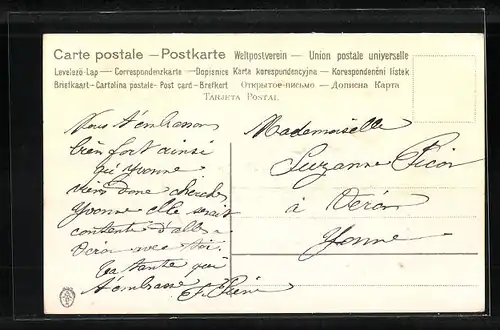 Carte postale — Postkarte Weltpostverein — Union postale universelle
Levelező-Lap — Correspondenzkarte — Dopisnice Karta korespondencyjna — Korespondenční lístek
Briefkaart — Cartolina postale — Post card — Brefkort Открытое-письмо — Дописна Карта
Tarjeta Postal
Nous t'embrassons
bien fort ainsi
qu'Yvonne.
viens donc chercher
Yvonne elle serait
contente d'aller
Véron avec toi.
Ta tante qui
t'embrasse
Mademoiselle
Suzanne
à Véron
Yonne